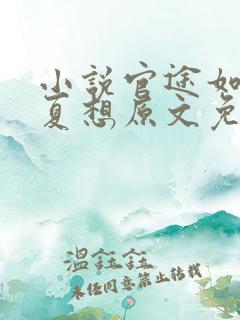 小说官途如
夏想原文免
温鈺鈺
未任同意禁止转载